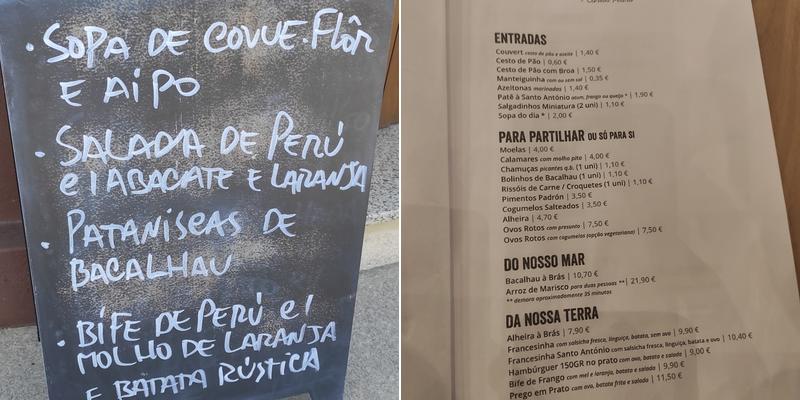 • SOPA DE COUVE.FLÔR
E AIPO
• SALADA DE PERÚ
e/ABACATE E LARANJA
• PATANISCAS DE
BACALHAU
• BIFE DE PERÚ e/
MOLHO DE LARANJA
E BATATA RÚSTICA
ENTRADAS
Couvert cesto de pão e azeite | 1,40 €
Cesto de Pão | 0,60 €
Cesto de Pão com Broa | 1,50 €
Manteiguinha com ou sem sal | 0,35 €
Azeitonas marinadas | 1,40 €
Patê à Santo António atum, frango ou queijo * | 1,90 €
Salgadinhos Miniatura (2 uni) | 1,10 €
Sopa do dia * | 2,00 €
PARA PARTILHAR OU SÓ PARA SI
Moelas | 4,00 €
Calamares com molho pita | 4,00 €
Chamuças picantes q.b. (1 uni) | 1,10 €
Bolinhos de Bacalhau (1 uni) | 1,10 €
Rissóis de Carne / Croquetes (1 uni) | 1,10 €
Pimentos Padrón | 3,50 €
Cogumelos Salteados | 3,50 €
Alheira | 4,70 €
Ovos Rotos com presunto | 7,50 €
Ovos Rotos com cogumelos (opção vegetariana) | 7,50 €
DO NOSSO MAR
Bacalhau à Brás | 10,70 €
Arroz de Marisco para duas pessoas **| 21,90 €
** demora aproximadamente 35 minutos
DA NOSSA TERRA
Alheira à Brás | 7,90 €
Francesinha com salsicha fresca, linguiça, batata, sem ovo | 9,90 €
Francesinha Santo António com salsicha fresca, linguiça, batata e ovo | 10,40 €
Hambúrguer 150GR no prato com ovo, batata e salada | 9,00 €
Bife de Frango com mel e laranja, batata e salada | 9,90 €
Prego em Prato com ovo, batata frita e salada | 11,50 €